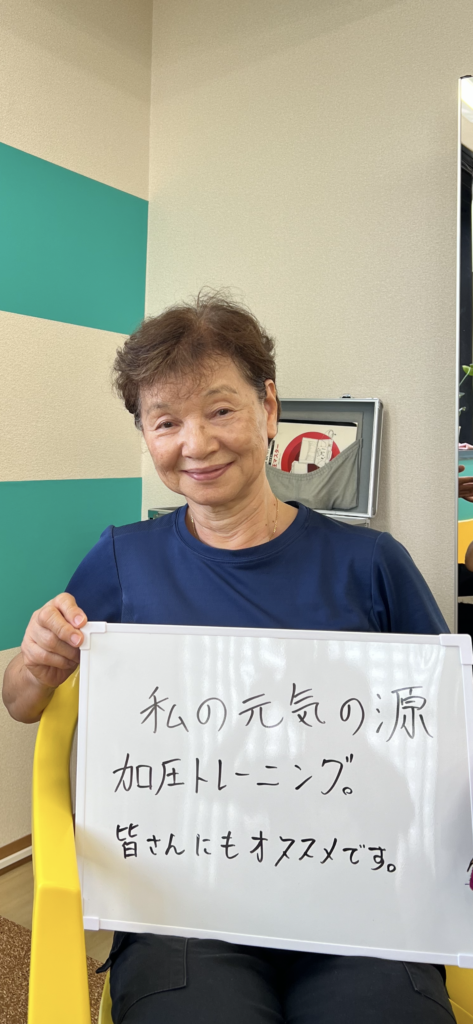 私の元気の源
加圧トレーニング。
皆さんにもオススメです。